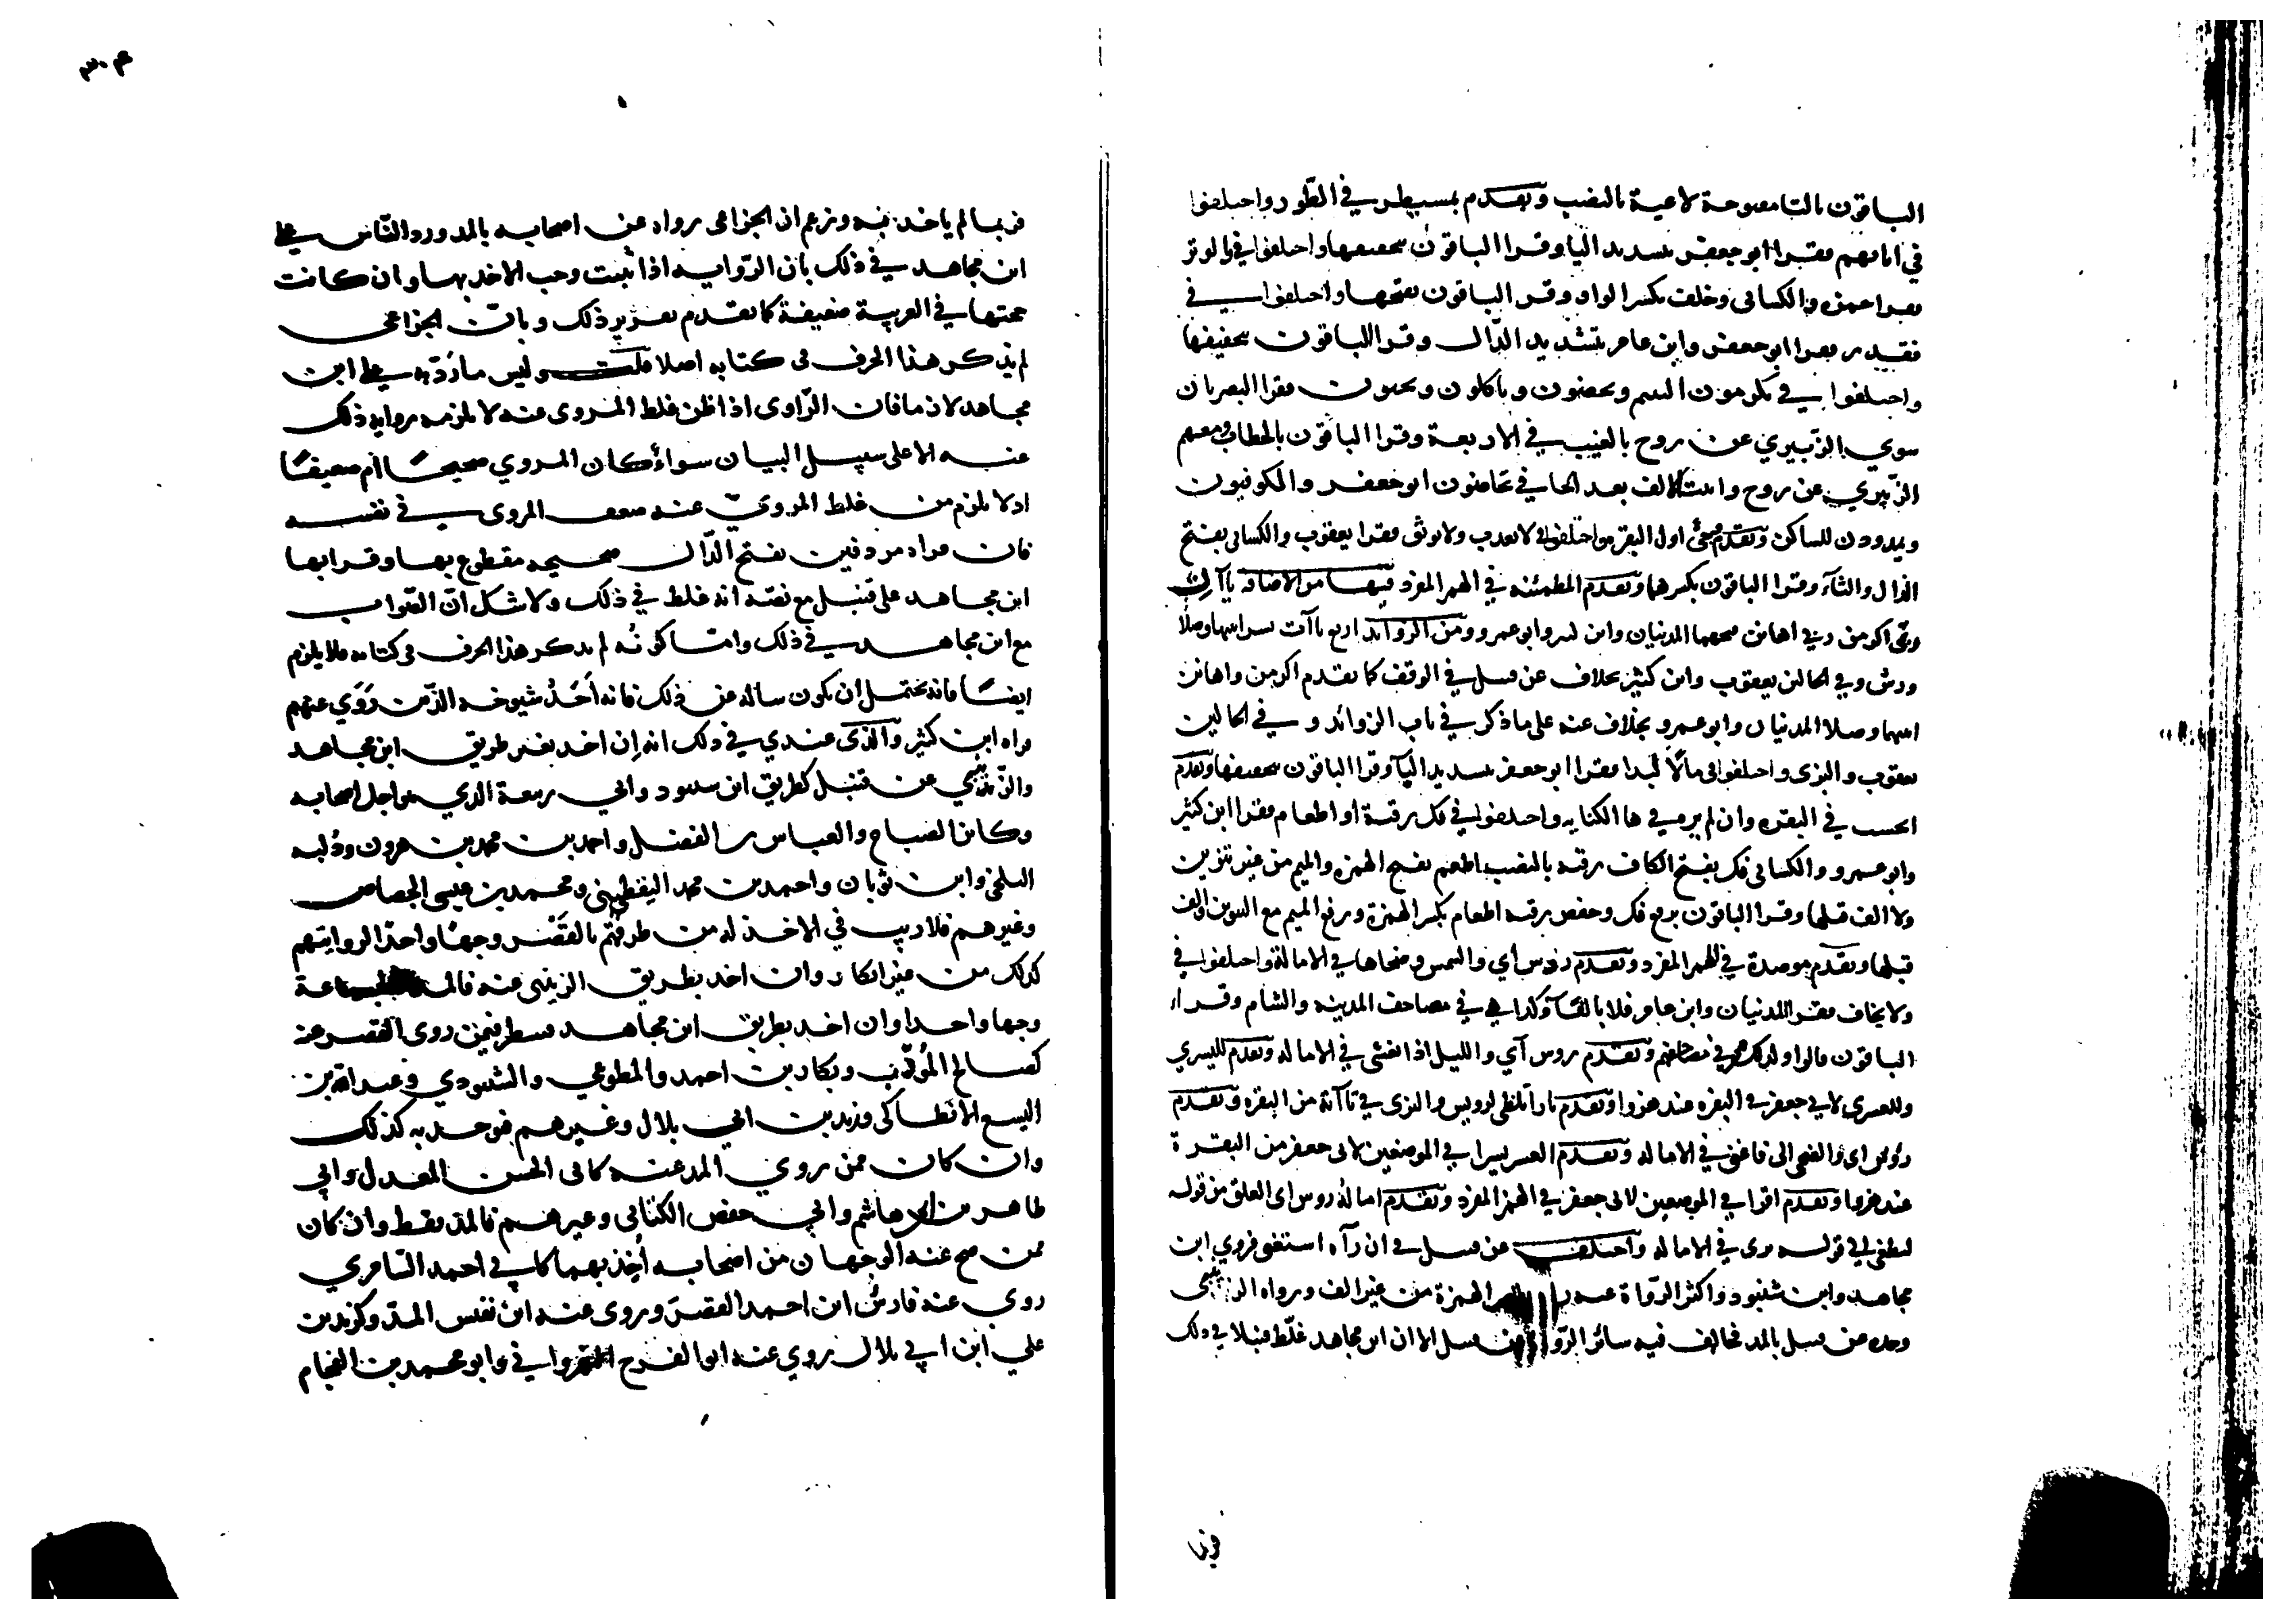 الباقون بالتا مفتوحة لاغية بالنصب وتقدم بمسيطر في الطور واختلفوا
في ايابهم فقرا ابو جعفر بتشديد اليا وقرا الباقون بتخفيفها واختلفوا في والوتر
فقرا حمزة والكسائي وخلف بكسر الواو وقرا الباقون بفتحها واختلفوا في
فقدر فقرا ابو جعفر وابن عامر بتشديد الدال وقرا الباقون بتخفيفها
واختلفوا في تكرمون اليتيم وتحضون وتاكلون وتحبون فقرا البصريان
سوي الزبيري عن روح بالغيب في الاربعة وقرا الباقون بالخطاب ومعهم
الزبيري عن روح واثبت الالف بعد الحا في تحاضون ابو جعفر والكوفيون
ويمدودن للساكن وتقدم وجئ اول البقرة واختلفوا في لا يعذب ولا يوثق فقرا يعقوب والكسائي بفتح
الذال والثاء وقرا الباقون بكسرهما وتقدم المطمئنة في الهمز المفرد فيها من الاضافة ياآن
ربي اكرمن ربي اهانن فتحهما المدنيان وابن كثير وابو عمرو ومن الزوائد اربع ياآت يسر اثبتها وصلا
ورش وفي الحالين يعقوب وابن كثير بخلاف عن قنبل في الوقف كما تقدم اكرمن واهانن
اثبتهما وصلا المدنيان وابو عمرو بخلاف عنه على ما ذكر في باب الزوائد وفي الحالين
يعقوب والبزي واختلفوا في مالا لبدا فقرا ابو جعفر بتشديد الباء وقرا الباقون بتخفيفها وتقدم
ايحسب في البقره وان لم يره في ها الكناية واختلفوا في فك رقبة او اطعام فقرا ابن كثير
وابو عمرو والكسائي فك بفتح الكاف رقبة بالنصب اطعم بفتح الهمزه والميم من غير تنوين
ولا الف قبلها وقرا الباقون برفع فك وخفض رقبة اطعام بكسر الهمزة ورفع الميم مع التنوين والف
قبلها وتقدم موصدة في الهمز المفرد وتقدم روس آي والشمس وضحاها في الامالة واختلفوا في
ولا يخاف فقرا المدنيان وابن عامر فلا بالفاء وكذا هي في مصاحف المدينة والشام وقرا
الباقون بالواو وكذلك هي في مصاحفهم وتقدم روس آي والليل اذا يغشى في الامالة وتقدم لليسري
وللعسري لابي جعفر في البقره عند هزوا وتقدم نارا تلظى لرويس والبزي في تاآته من البقره وتقدم
رؤس اي والضحى الى فاغنى في الامالة وتقدم العسر يسرا في الموضعين لابي جعفر من البقرة
عند هزوا وتقدم اقرا في الموضعين لابي جعفر في الهمز المفرد وتقدم امالة روس اي العلق من قوله
ليطغى الي قوله يرى في الامالة واختلف عن قنبل في ان رآه استغنى فروي ابن
مجاهد وابن شنبوذ واكثر الرواة عنه الهمزة من غير الف ورواه الزينبي
وحده عن قنبل بالمد فخالف فيه سائر الرواة عن قنبل الا ان ابن مجاهد غلط قنبلا في ذلك
فربما
فربما لم ياخذ به وزعم ان الخزاعي رواه عن اصحابه بالمد ورد الناس على
ابن مجاهد في ذلك بان الرواية اذا ثبتت وجب الاخذ بها وان كانت
حجتها في العربية ضعيفة كما تقدم تقرير ذلك وبان الخزاعي
لم يذكر هذا الحرف في كتابه اصلا قلت وليس ما رد به على ابن
مجاهد لازما فان الراوي اذا ظن غلط المروى عنه لا يلزمه رواية ذلك
عنه الا على سبيل البيان سواء كان المروي صحيحا ام ضعيفا
اذ لا يلزم من غلط المروي عنه ضعف المروى في نفسه
فان قراءه مردفين بفتح الدال صحيحه مقطوع بها وقرا بها
ابن مجاهد على قنبل مع نصه انه غلط في ذلك ولا شك ان الصواب
مع ابن مجاهد في ذلك واما كونه لم يذكر هذا الحرف في كتابه فلا يلزم
ايضا فانه يحتمل ان يكون ساله عن ذلك فانه احد شيوخه الذين روي عنهم
قراه ابن كثير والذي عندي في ذلك انه ان اخذ بغير طريق ابن مجاهد
والزينبي عن قنبل كطريق ابن شنبوذ وابي ربيعة الذي هو اجل اصحابه
وكابن الصباح والعباس بن الفضل واحمد بن محمد بن هرون ودلبه
البلخي وابن ثوبان واحمد بن محمد اليقطيني ومحمد بن عيسى الجصاص
وغيرهم فلا ريب في الاخذ له من طرقهم بالقصر وجها واحدا لروايتهم
كذلك من غير انكار وان اخذ بطريق الزينبي عنه فالمد
وجها واحدا وان اخذ بطريق ابن مجاهد فينظر فيمن روى القصر عنه
كصالح المؤدب وبكار بن احمد والمطوعي والشنبوذي وعبد الله بن
اليسع الانطاكي وزيد بن ابي بلال وغيرهم فيوخذ به كذلك
وان كان ممن روي المد عنه كابي الحسن المعدل وابي
طاهر بن ابي هاشم وابي حفص الكتاني وغيرهم فالمد فقط وان كان
ممن صح عنه الوجهان من اصحابه اخذ بهما كابي احمد السامري
روي عنه فارس ابن احمد القصر وروى عنه ابن نفيس المد وكزيد بن
علي ابن ابي بلال روي عنه ابو الفرج النهرواني وابو محمد بن الفحام